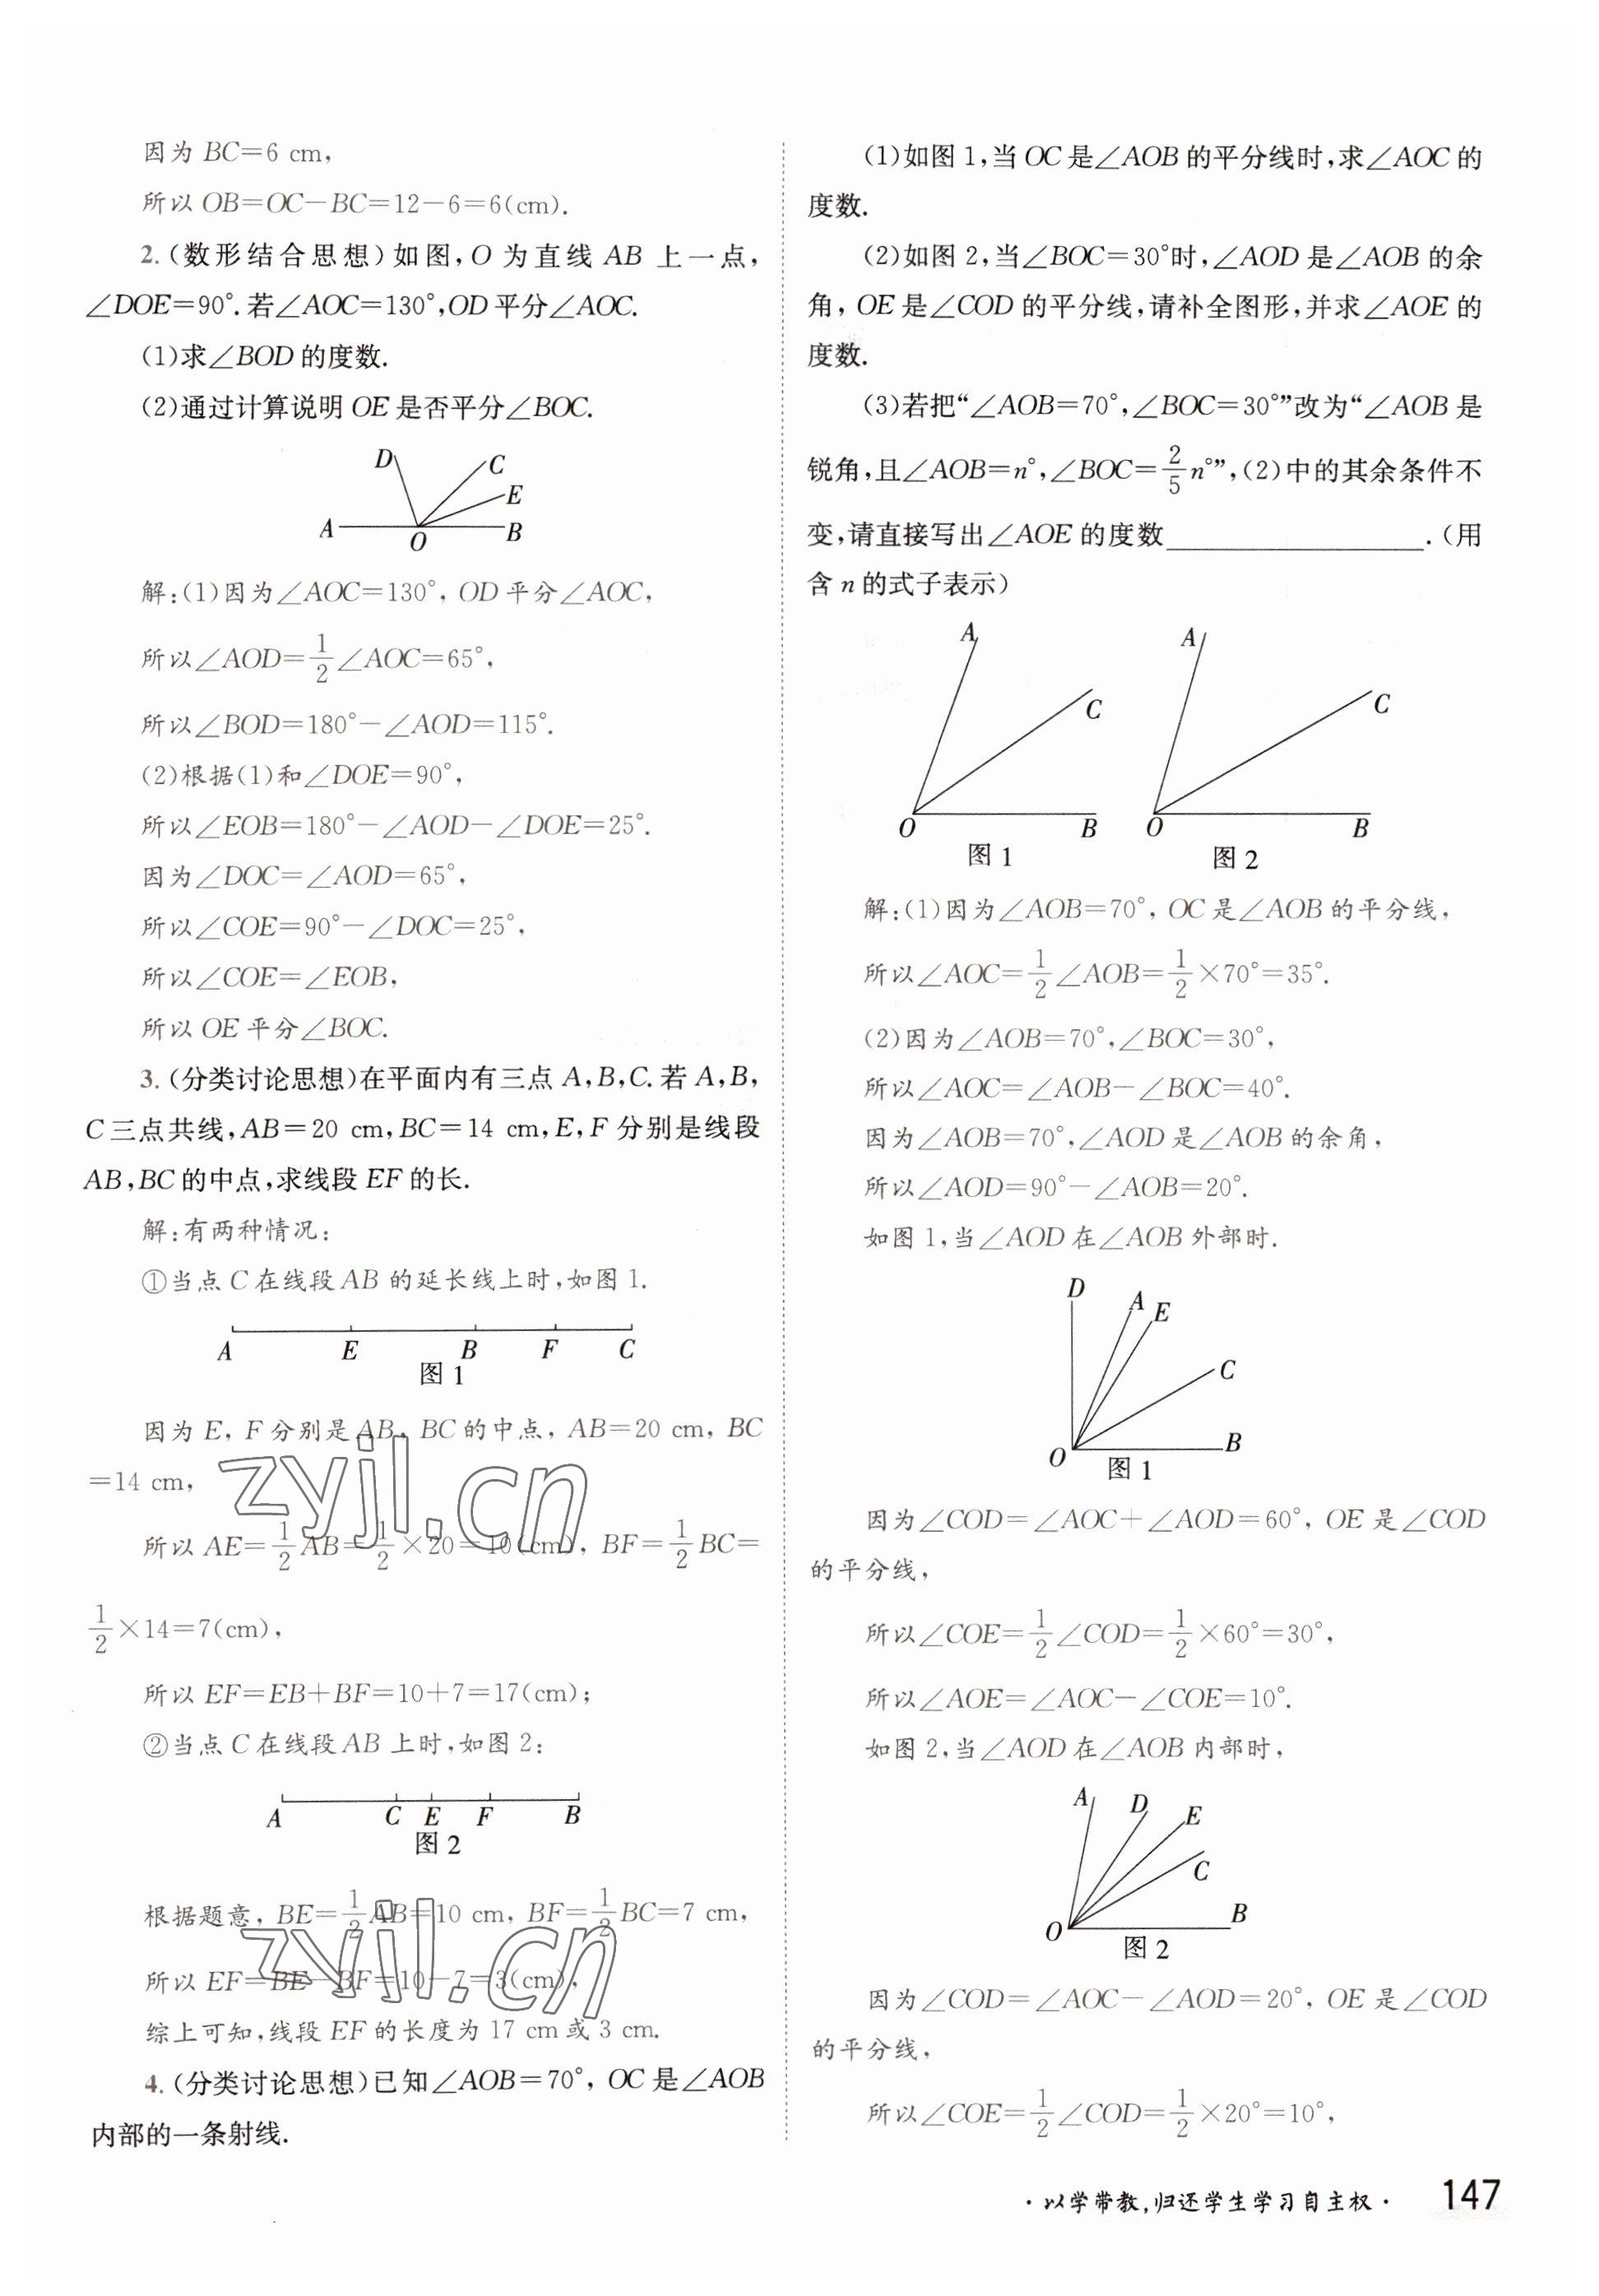 因为 BC=6 cm,
所以 OB=OC-BC=12-6=6(cm).
2.(数形结合思想)如图,O 为直线 AB 上一点,
∠DOE=90°.若∠AOC=130°,OD 平分∠AOC.
(1)求∠BOD 的度数.
(2)通过计算说明 OE 是否平分∠BOC.
D C
E
A O B
解:(1)因为∠AOC=130°, OD 平分∠AOC,
所以∠AOD=1/2∠AOC=65°,
所以∠BOD=180°-∠AOD=115°.
(2)根据(1)和∠DOE=90°,
所以∠EOB=180°-∠AOD-∠DOE=25°.
因为∠DOC=∠AOD=65°,
所以∠COE=90°-∠DOC=25°,
所以∠COE=∠EOB,
所以 OE 平分∠BOC.
3.(分类讨论思想)在平面内有三点 A,B,C.若 A,B,
C 三点共线,AB=20 cm,BC=14 cm,E,F 分别是线段
AB,BC 的中点,求线段 EF 的长.
解:有两种情况:
①当点 C 在线段 AB 的延长线上时,如图 1.
A E B F C
图 1
因为 E, F 分别是 AB, BC 的中点, AB=20 cm, BC
=14 cm,
所以 AE=1/2 AB=1/2×20=10(cm), BF=1/2 BC=
1/2×14=7(cm),
所以 EF=EB+BF=10+7=17(cm);
②当点 C 在线段 AB 上时,如图 2:
A C E F B
图 2
根据题意, BE=1/2 AB=10 cm, BF=1/2 BC=7 cm,
所以 EF=BE-BF=10-7=3(cm),
综上可知,线段 EF 的长度为 17 cm 或 3 cm.
4.(分类讨论思想)已知∠AOB=70°, OC 是∠AOB
内部的一条射线.
(1)如图 1,当 OC 是∠AOB 的平分线时,求∠AOC 的
度数.
(2)如图 2,当∠BOC=30°时,∠AOD 是∠AOB 的余
角, OE 是∠COD 的平分线,请补全图形,并求∠AOE 的
度数.
(3)若把“∠AOB=70°,∠BOC=30°”改为“∠AOB 是
锐角,且∠AOB=n°,∠BOC=2/5 n°”,(2)中的其余条件不
变,请直接写出∠AOE 的度数____________.(用
含 n 的式子表示)
A
C
O B
图 1
A
C
O B
图 2
解:(1)因为∠AOB=70°, OC 是∠AOB 的平分线,
所以∠AOC=1/2∠AOB=1/2×70°=35°.
(2)因为∠AOB=70°,∠BOC=30°,
所以∠AOC=∠AOB-∠BOC=40°.
因为∠AOB=70°,∠AOD 是∠AOB 的余角,
所以∠AOD=90°-∠AOB=20°.
如图 1,当∠AOD 在∠AOB 外部时.
D A E
C
O B
图 1
因为∠COD=∠AOC+∠AOD=60°, OE 是∠COD
的平分线,
所以∠COE=1/2∠COD=1/2×60°=30°,
所以∠AOE=∠AOC-∠COE=10°.
如图 2,当∠AOD 在∠AOB 内部时,
A D E
C
O B
图 2
因为∠COD=∠AOC-∠AOD=20°, OE 是∠COD
的平分线,
所以∠COE=1/2∠COD=1/2×20°=10°,
·以学带教,归还学生学习自主权· 147
zyjl.cn
zyjl.cn